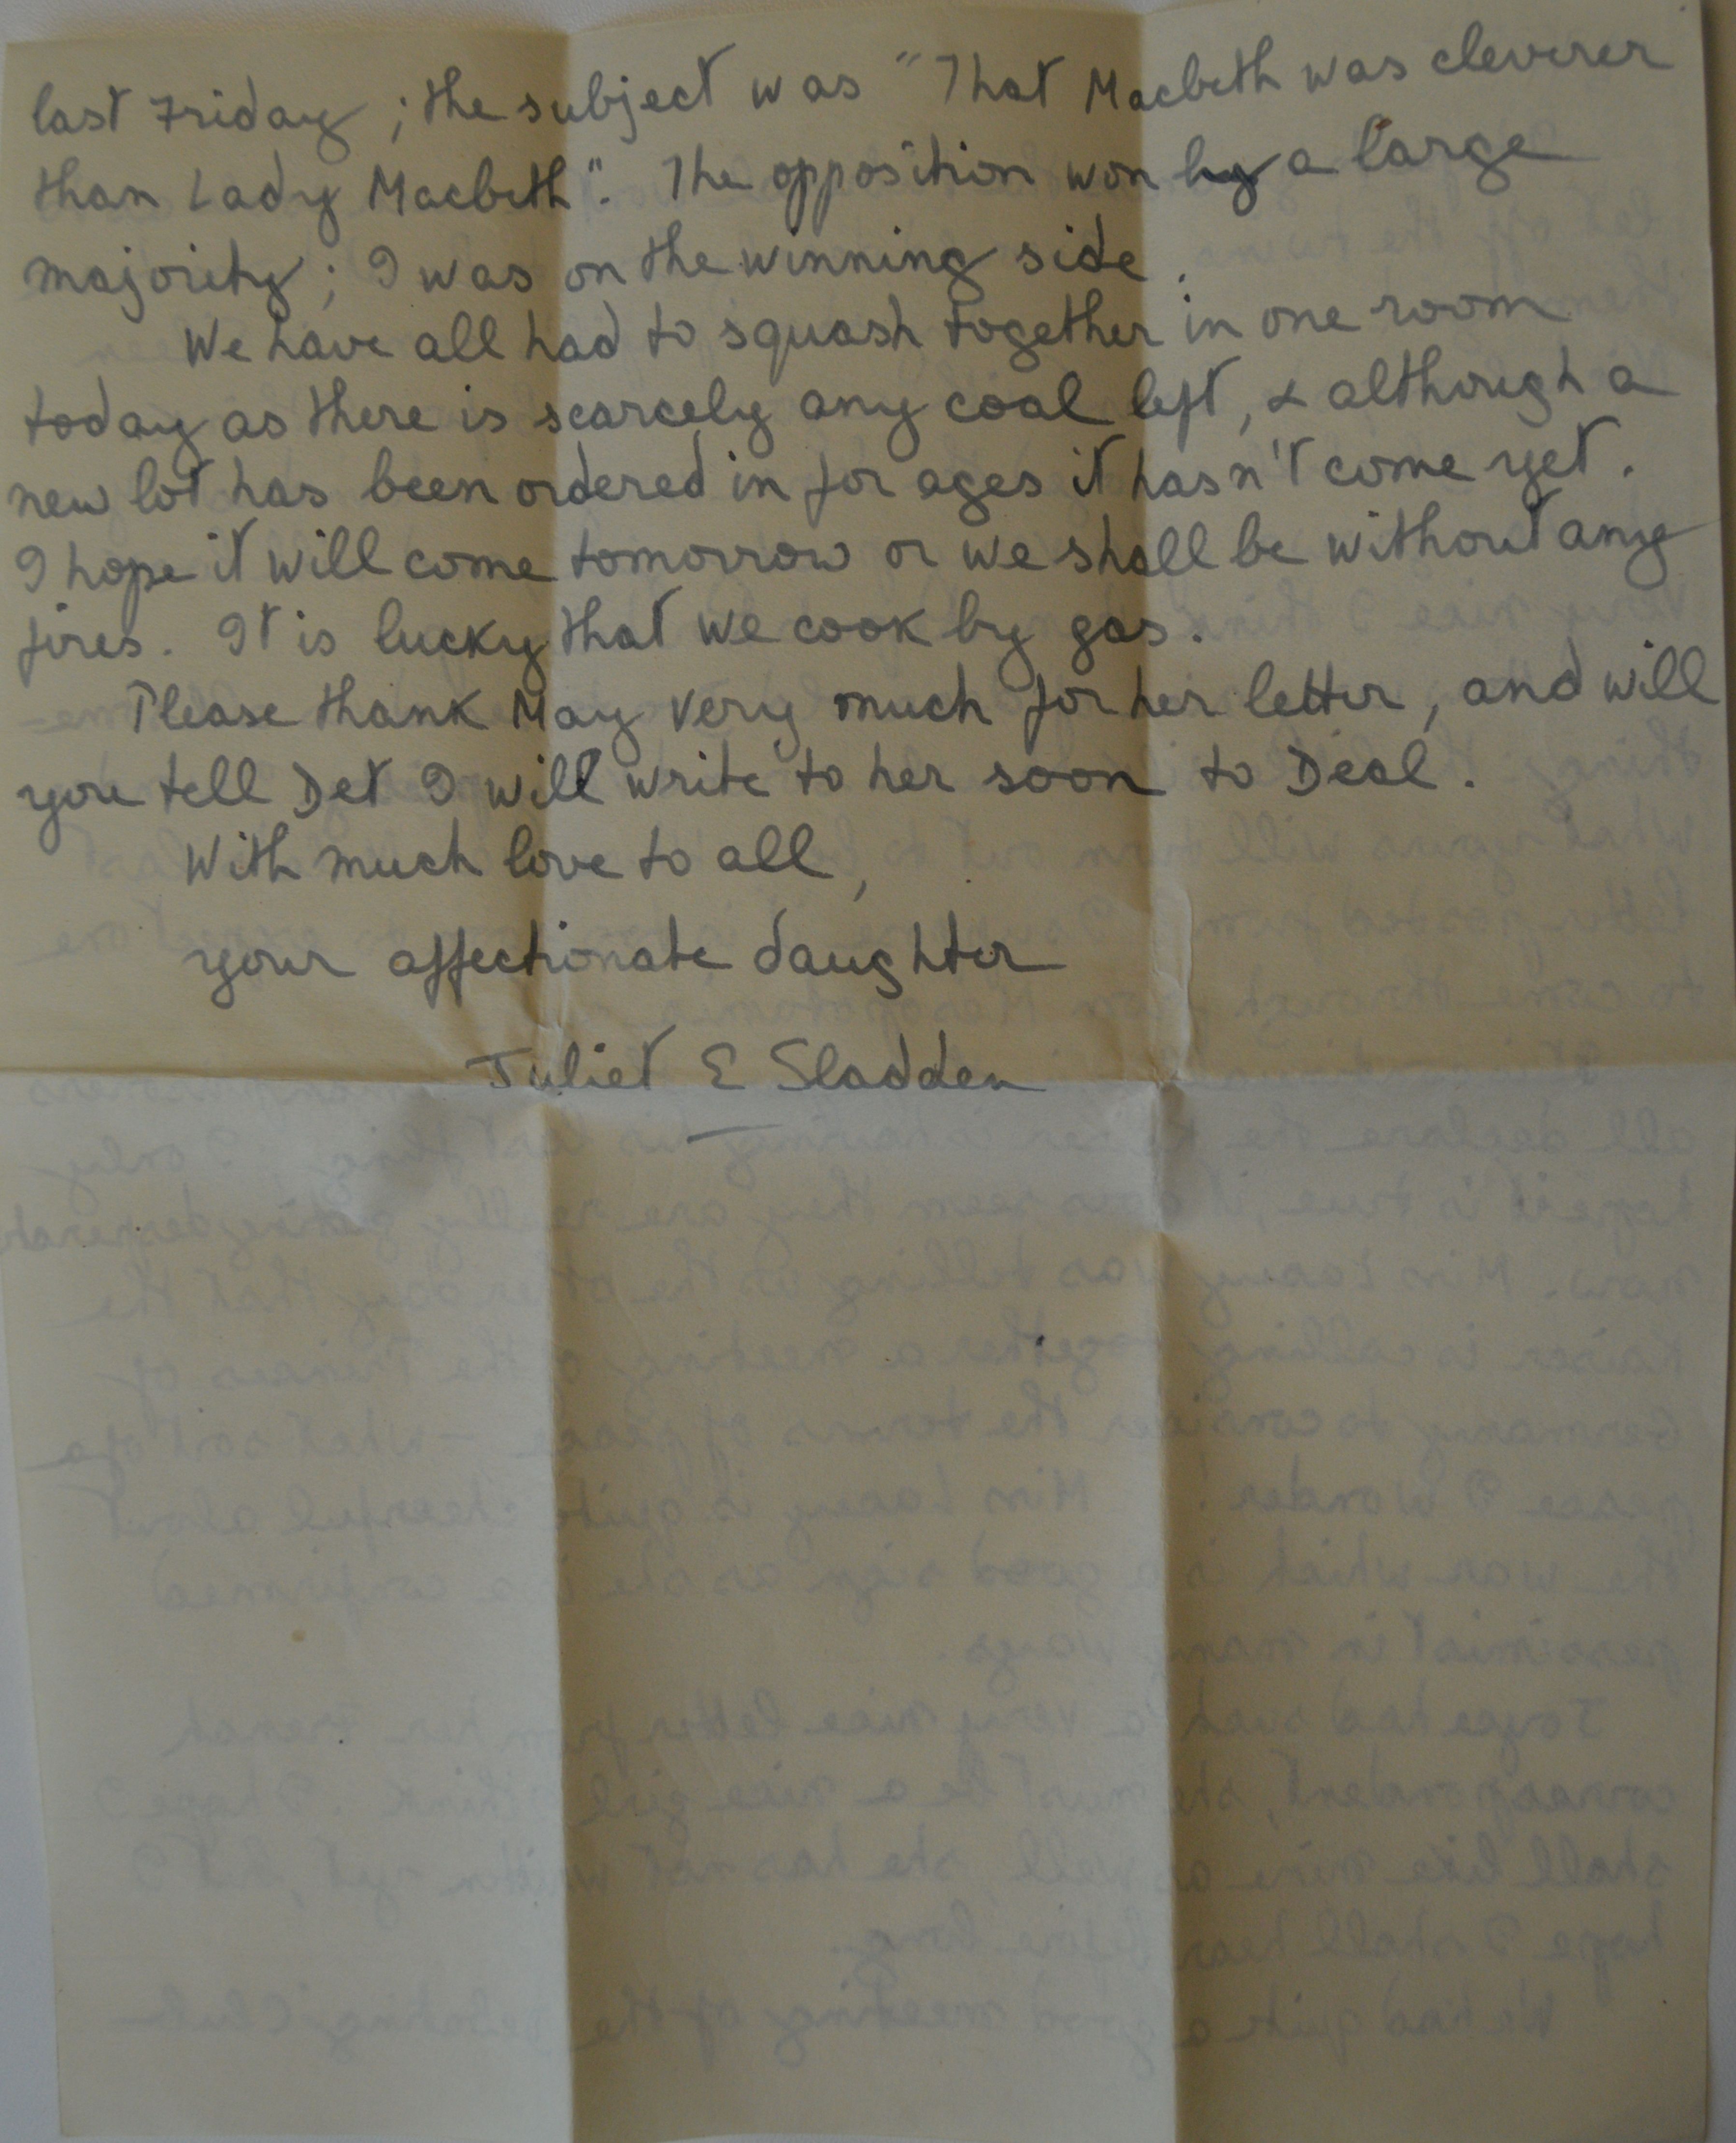 last Friday ; the subject was "That Macbeth was cleverer
than Lady Macbeth". The opposition won by a large
majority ; I was on the winning side.
We have all had to squash together in one room
today as there is scarcely any coal left, & although a
new lot has been ordered in for ages it hasn't come yet.
I hope it will come tomorrow or we shall be without any
fires. It is lucky that we cook by gas.
Please thank May very much for her letter, and will
you tell Det I will write to her soon to Deal.
With much love to all,
your affectionate daughter
Juliet E Sladden